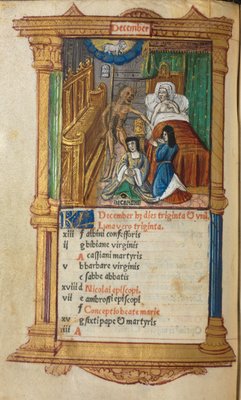 December
December
December hz dies triginta & vnū
Luna vero triginta.
xiii f albini confessoris
ii g bibiane virginis
A cassiani martyris
v b barbare virginis
c sabbe abbatis
xviii d Nicolai episcopi.
vii e ambrosii episcopi
f Conceptio beate marie
xv g sixti pape & martyris
iiii A